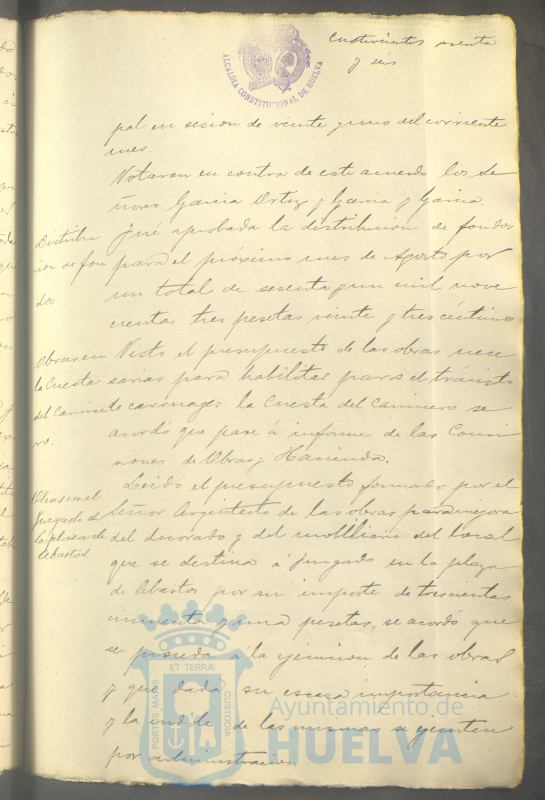 ALCALDIA CONSTITUCIONAL DE HUELVA
Cuatrocientos
y seis
pal en sesion de veinte y uno del corriente
mes.
Votaron en contra de este acuerdo los Se
ñores Garcia Ortiz y Garcia y Garcia.
Distribu
cion de fon
dos
Fué aprobada la distribucion de fondos
para el próximo mes de Agosto por
un total de sesenta y un mil nove
cientas tres pesetas veinte y tres céntimos
Obras en
la Cuesta
del Carnice
ro.
Visto el presupuesto de las obras nece
sarias para habilitar para el tránsito
de carruages la Cuesta del Carnicero se
acordó que pase á informe de las Comi
siones de Obras y Hacienda.
Obras en el
Juzgado de
la plaza de
Abastos
Leido el presupuesto formado por el
Señor Arquitecto de las obras para mejora
del decorado y del mobiliario del local
que se destina á juzgado en la plaza
de Abastos por su importe de trescientas
cincuenta y una pesetas, se acordó que
se proceda á la ejecucion de las obras
y que dada su escasa importancia
y la índole de las mismas se ejecuten
por administracion
PORTUS MARIS
ET TERRÆ
CUSTODIA
Ayuntamiento de
HUELVA